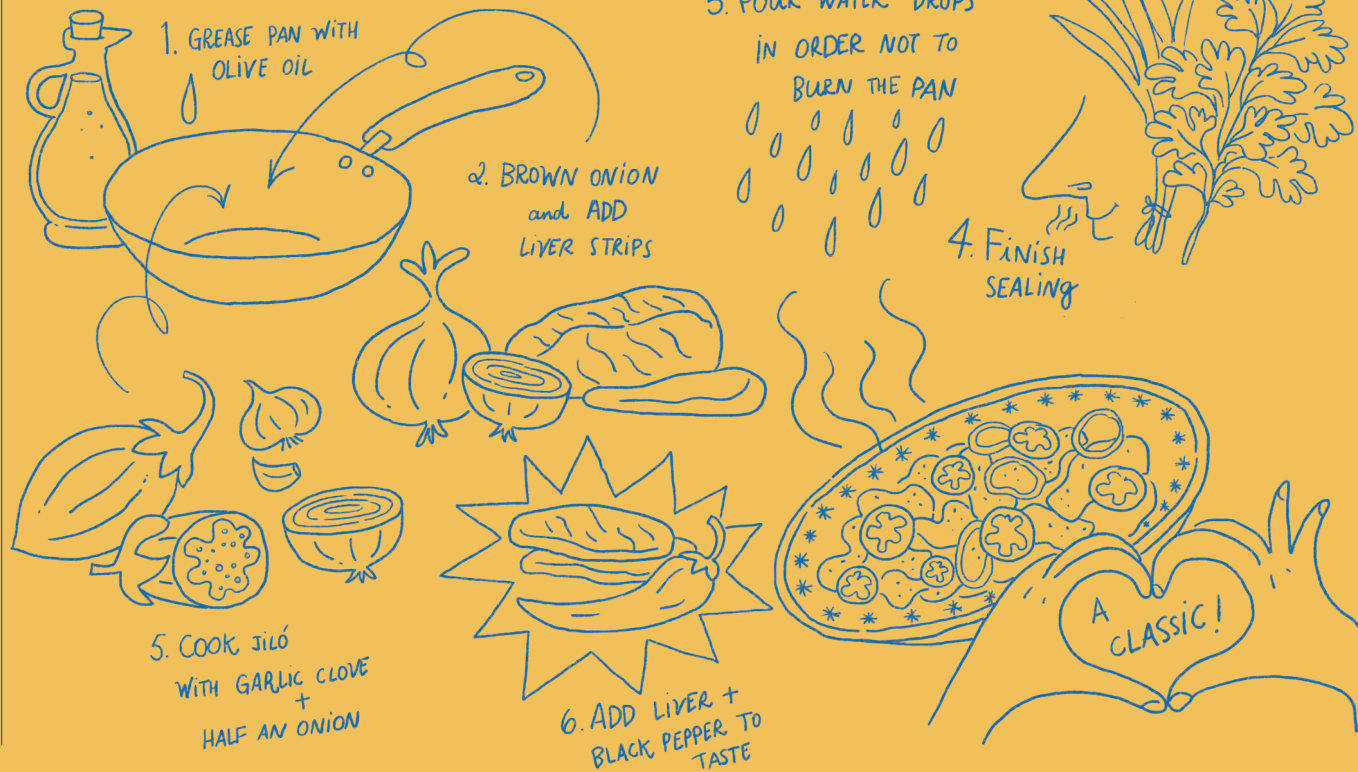 1. GREASE PAN WITH
OLIVE OIL
2. BROWN ONION
and ADD
LIVER STRIPS
3. POUR WATER DROPS
IN ORDER NOT TO
BURN THE PAN
4. FINISH
SEALING
5. COOK JILÓ
WITH GARLIC CLOVE
+
HALF AN ONION
6. ADD LIVER +
BLACK PEPPER TO
TASTE
A
CLASSIC!